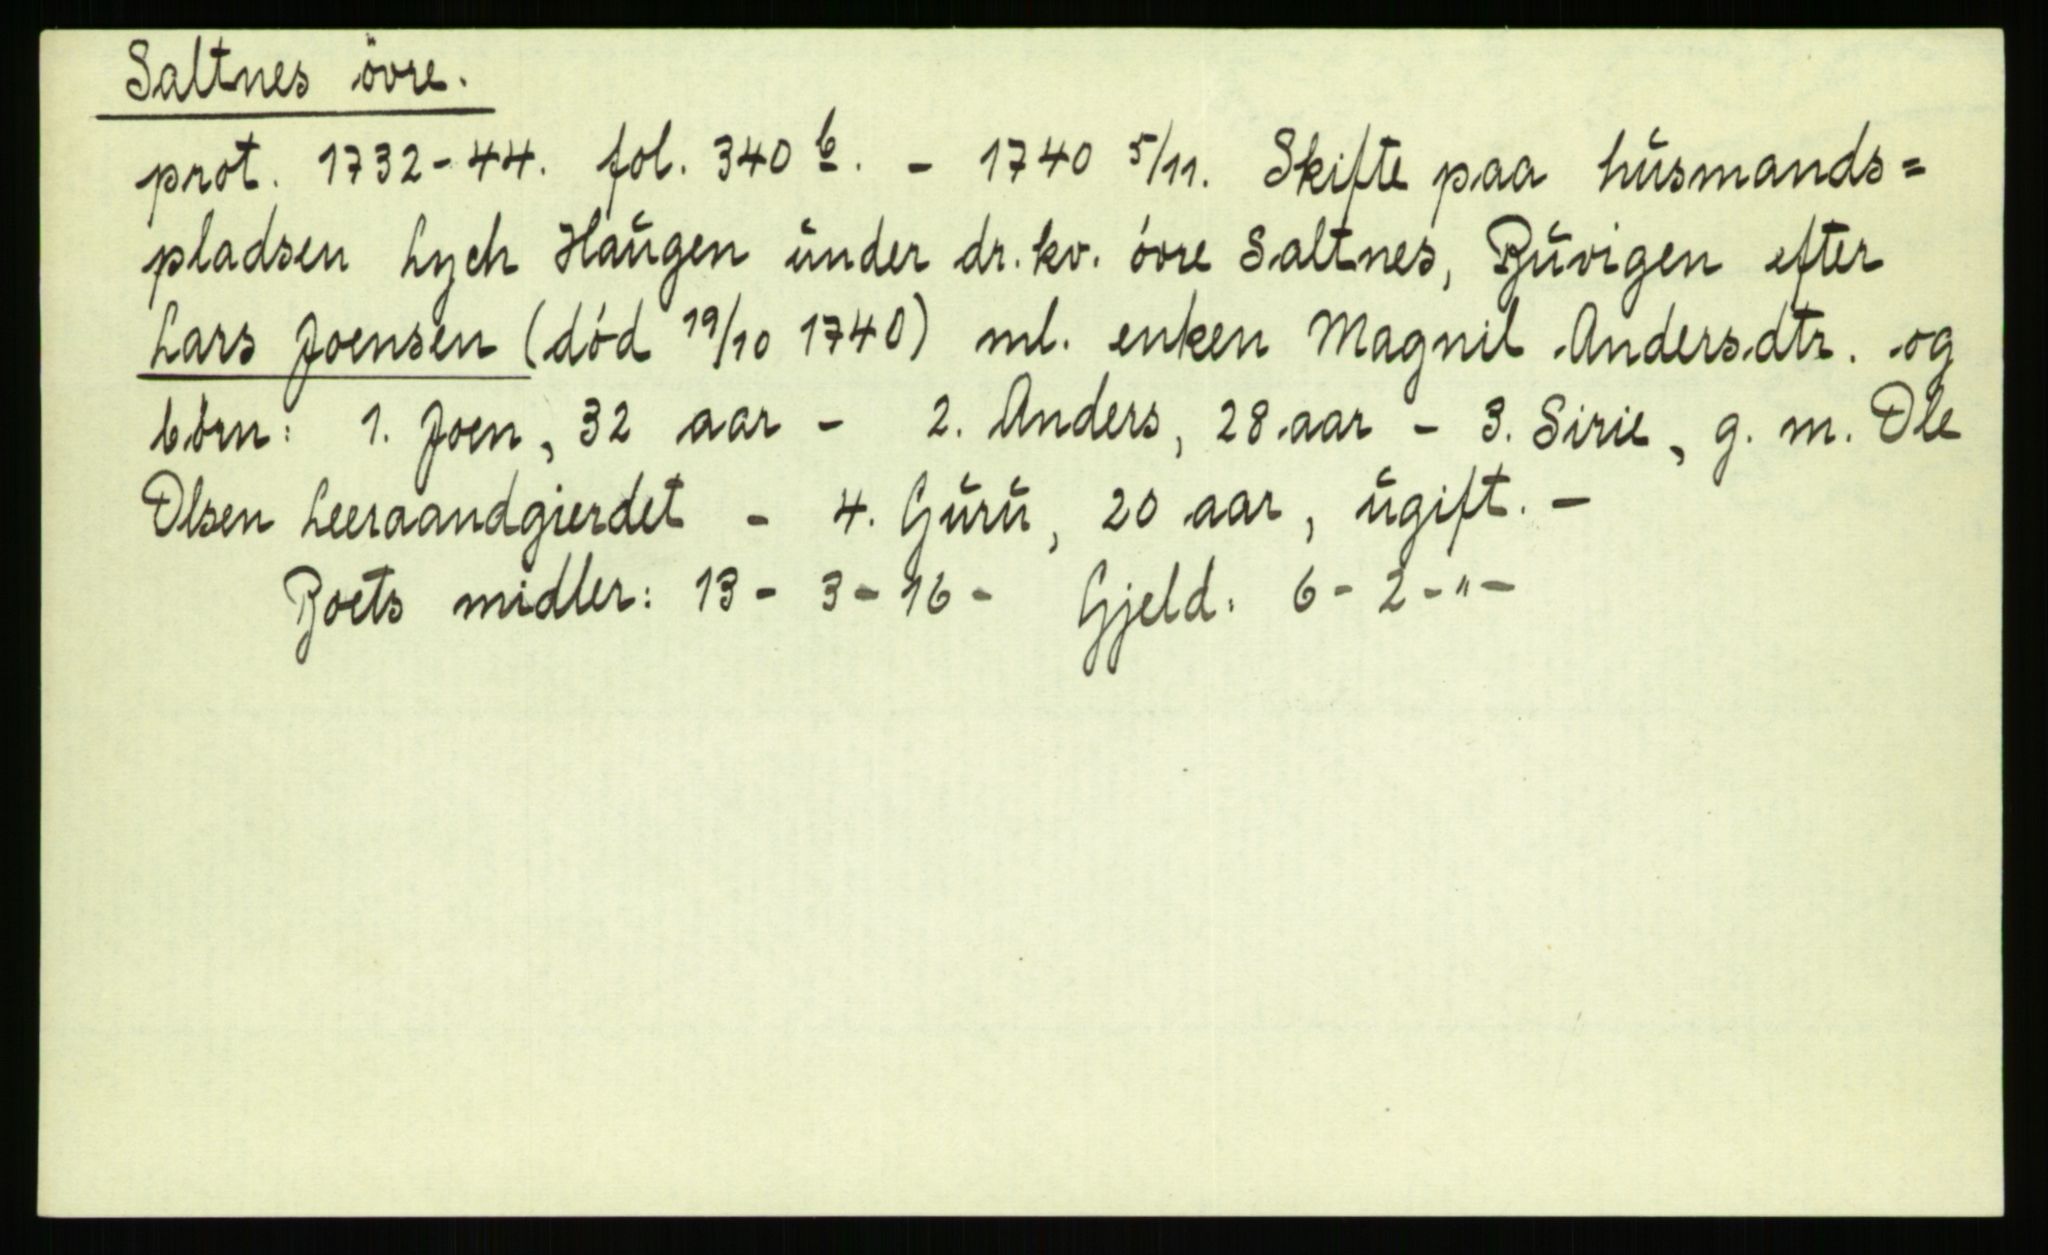 Saltnes övre.
prot. 1732-44. fol. 340 b. - 1740 5/11. Skifte paa husmands=
pladsen Lych Haugen under dr. kv. óvre Saltnes, Buvigen efter
Lars Joensen (dód 19/10 1740) ml. enken Magnil Andersdtr. og
bórn: 1. Joen, 32 aar - 2. Anders, 28 aar - 3. Sirie, g. m. Ole
Olsen Leeraandgierdet - 4. Guru, 20 aar, ugift. -
Boets midler: 13 - 3 - 16 - Gjeld: 6 - 2 - " -